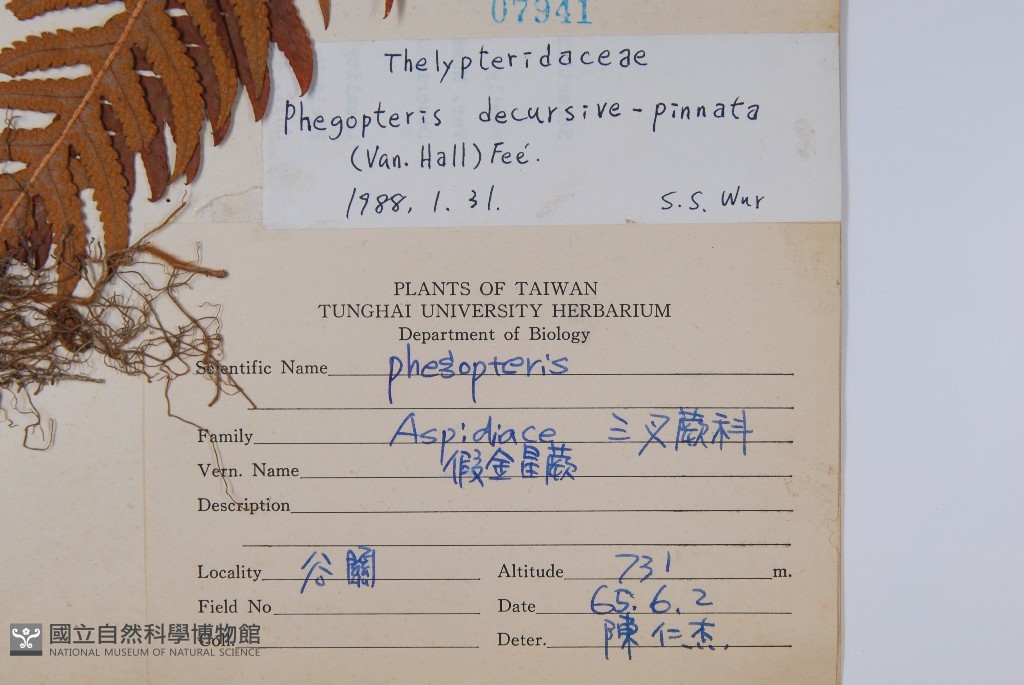 07941
Thelypteridaceae
Phegopteris decursive-pinnata
(Van. Hall) Feé.
1988. 1. 31. S.S. Wur
PLANTS OF TAIWAN
TUNGHAI UNIVERSITY HERBARIUM
Department of Biology
Scientific Name phegopteris
Family Aspidiace 三叉蕨科
Vern. Name 假金星蕨
Description
Locality 谷關 Altitude 731 m.
Field No Date 65.6.2
Coll. Deter. 陳仁杰.
國立自然科學博物館
NATIONAL MUSEUM OF NATURAL SCIENCE